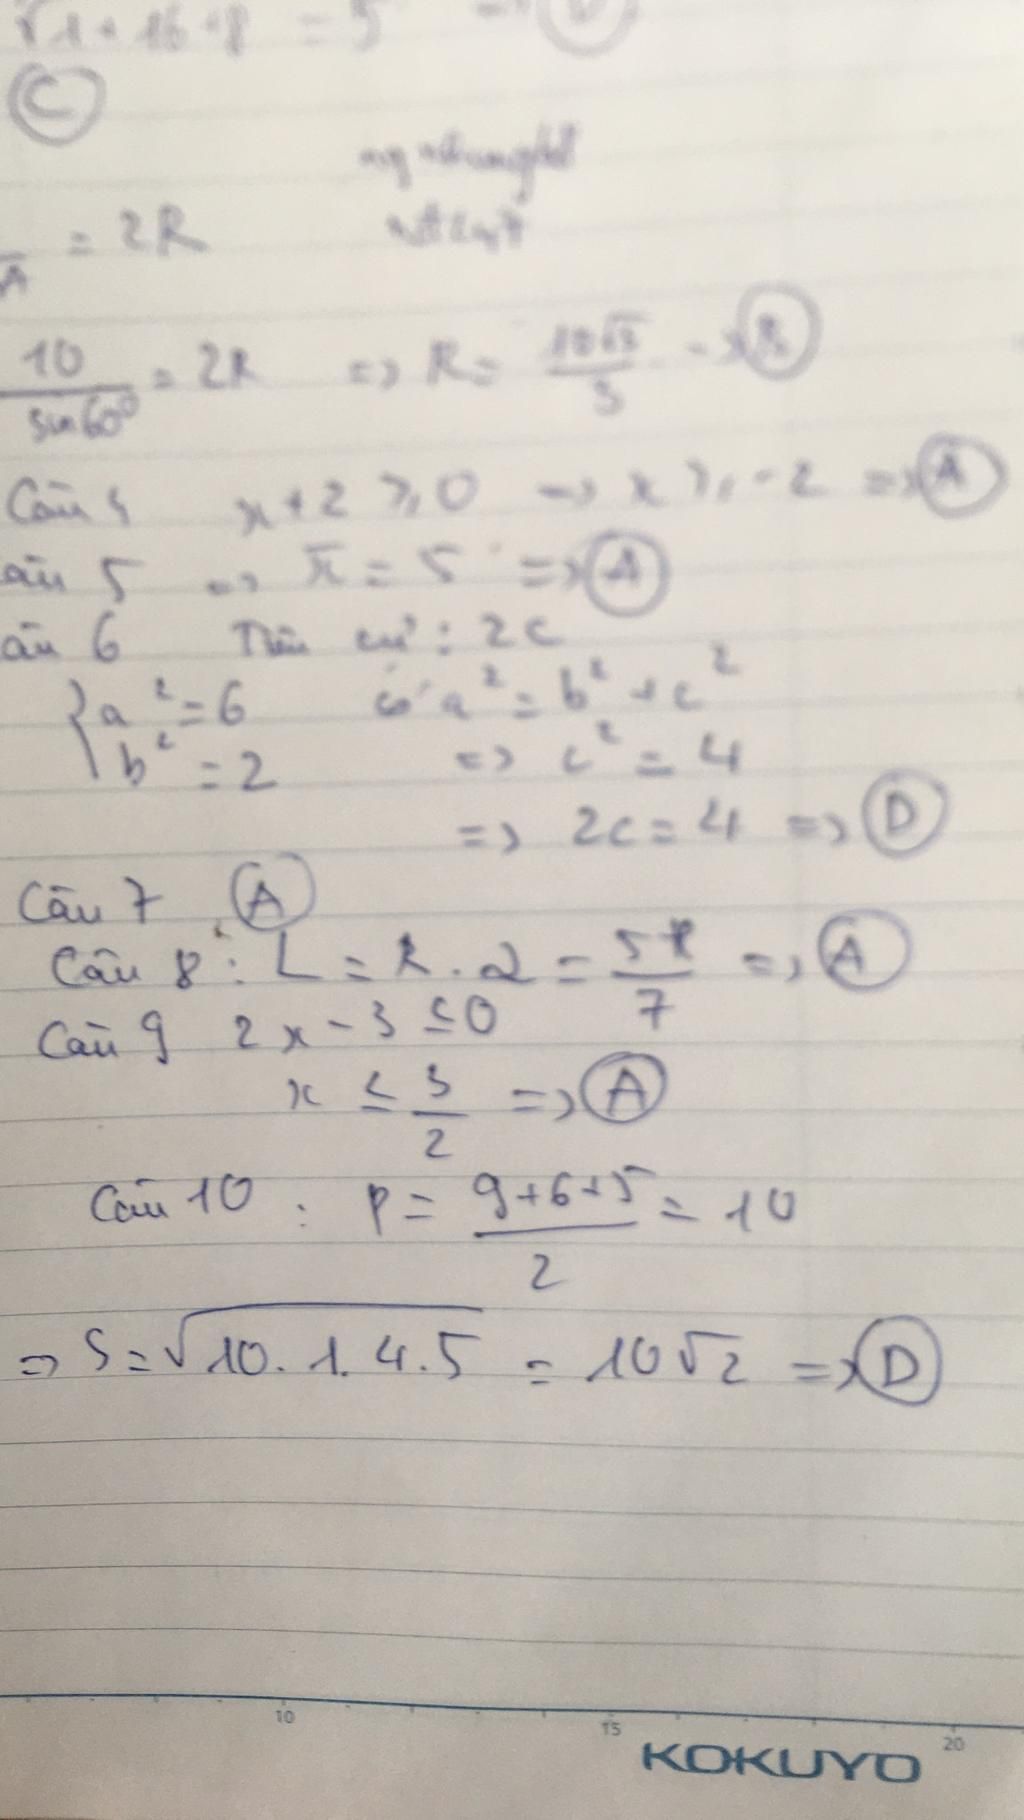 √1+16+8 = 5 => D
C
A = 2R
10/sin60° = 2R => R = 10√3/3 -> B
Câu 4 x+2 ⩾ 0 => x ⩾ -2 => A
âu 5 => x̄ = 5 => A
âu 6 Tiêu cự : 2c
{ a² = 6 có a² = b² + c²
b² = 2 => c² = 4
=> 2c = 4 => D
Câu 7 A
Câu 8 : L = R . α = 5π/7 => A
Câu 9 2x - 3 ≤ 0
x ≤ 3/2 => A
Câu 10 : P = (9+6+5)/2 = 10
=> S = √10.1.4.5 = 10√2 => D
10 15 20
KOKUYO